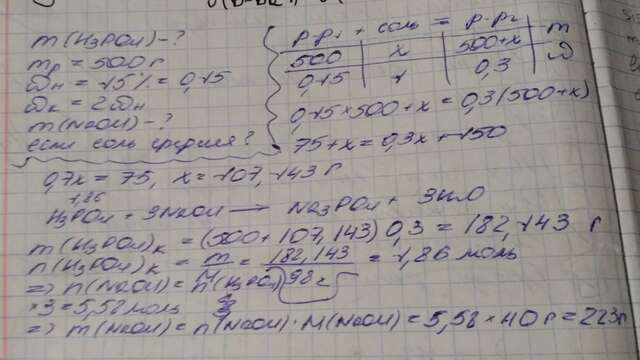 m(H₃PO₄) - ?
mр = 500 г
ωн = 15% = 0,15
ωк = 2ωн
m(NaOH) - ?
если соль средняя?
р-р₁ + соль = р-р₂
500 | x | 500+x m
0,15 | 1 | 0,3 ω
0,15×500+x = 0,3(500+x)
75+x = 0,3x + 150
0,7x = 75, x = 107,143 г
1,86
H₃PO₄ + 3NaOH → Na₃PO₄ + 3H₂O
m(H₃PO₄)к = (500 + 107,143) 0,3 = 182,143 г
n(H₃PO₄)к = m/M = 182,143/98 = 1,86 моль
=> n(NaOH) = n(H₃PO₄)
×3 = 5,58 моль
=> m(NaOH) = n(NaOH) · M(NaOH) = 5,58 × 40 г = 223г